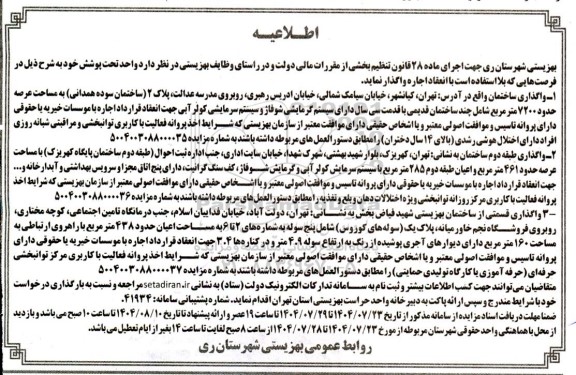 اطلاعیه
بهزیستی شهرستان ری جهت اجرای ماده ۲۸ قانون تنظیم بخشی از مقررات مالی دولت و در راستای وظایف بهزیستی در نظر دارد واحد تحت پوشش خود به شرح ذیل در
فرصت‌هایی که بلااستفاده است با انعقاد اجاره واگذار نماید.
۱-واگذاری ساختمان واقع در آدرس: تهران، کیانشهر، خیابان سیامک شمالی، خیابان ادریس رهبری، روبروی مدرسه عدالت، پلاک ۲ (ساختمان سوده همدانی) به مساحت عرصه
حدود ۷۲۰۰ متر مربع شامل چند ساختمان قدیمی با قدمت ۵۰ سال دارای سیستم گرمایشی شوفاژ و سیستم سرمایشی کولر آبی جهت انعقاد قرارداد اجاره با موسسات خیریه یا حقوقی
دارای پروانه تاسیس و موافقت اصولی معتبر و یا اشخاص حقیقی دارای موافقت معتبر از سازمان بهزیستی که شرایط اخذ پروانه فعالیت با کاربری توانبخشی و مراقبتی شبانه روزی
افراد دارای اختلال هوشی رشدی (بالای ۱۴ سال دختران) را مطابق دستورالعمل های مربوطه داشته باشند به شماره مزایده ۵۰۰۴۰۰۳۰۸۸۰۰۰۰۳۵
۲-واگذاری طبقه دوم ساختمان به نشانی: تهران، کهریزک، بلوار شهید بهشتی، شهرک شهدا، خیابان سایت اداری، جنب اداره ثبت احوال (طبقه دوم ساختمان پایگاه کهریزک) با مساحت
عرصه حدود ۴۶۱ متر مربع و اعیان طبقه دوم ۲۸۵ متر مربع با سیستم سرمایش کولر آبی و گرمایش شوفاژ، کف سنگ گرانیت، دارای پنج اتاق مجزا و سرویس بهداشتی و آبدارخانه و...
جهت انعقاد قرارداد اجاره با موسسات خیریه یا حقوقی دارای پروانه تاسیس و موافقت اصولی معتبر و یا اشخاص حقیقی دارای موافقت اصولی معتبر از سازمان بهزیستی که شرایط اخذ
پروانه فعالیت با کاربری مرکز روزانه توانبخشی ویژه اختلالات ذهنی بالغ و یا اوتیسم را مطابق دستورالعمل های مربوطه داشته باشند به شماره مزایده ۵۰۰۴۰۰۳۰۸۸۰۰۰۰۳۶
۳- واگذاری قسمتی از ساختمان بهزیستی شهید فیاض بخش به نشانی: تهران، دولت آباد، خیابان فداییان اسلام، جنب درمانگاه تامین اجتماعی، کوچه مختاری،
روبروی فروشگاه نجم خاورمیانه، پلاک یک (سوله های کوزوس) شامل پنج سوله به شماره های ۲ تا ۶ به مساحت اعیان حدود ۴۳۸ متر مربع با راهروی ارتباطی به
مساحت ۱۶۰ متر مربع دارای دیوار های آجری پوشیده از رنگ به ارتفاع سوله ۴.۹ متر و در کناره ها ۳.۰۴ جهت انعقاد قرارداد اجاره با موسسات خیریه یا حقوقی دارای
پروانه تاسیس و موافقت اصولی معتبر و یا اشخاص حقیقی دارای موافقت اصولی معتبر از سازمان بهزیستی که شرایط اخذ پروانه فعالیت با کاربری مرکز توانبخشی
حرفه‌ای (حرفه آموزی یا کارگاه تولیدی حمایتی) را مطابق دستورالعمل های مربوطه داشته باشند به شماره مزایده ۵۰۰۴۰۰۳۰۸۸۰۰۰۰۳۷
متقاضیان می توانند جهت کسب اطلاعات بیشتر و ثبت نام به سامانه تدارکات الکترونیک دولت (ستاد) به نشانی setadiran.ir مراجعه و نسبت به بارگذاری درخواست
خود با شرایط مندرج و سپس ارائه پاکت به دبیرخانه واحد حراست بهزیستی استان تهران اقدام نماید. شماره پشتیبانی سامانه: ۴۱۹۳۴
ضمنا مهلت دریافت اسناد مزایده از سامانه مذکور از تاریخ ۱۴۰۴/۰۷/۲۳ تا ۱۴۰۴/۰۷/۲۹ تا ساعت ۱۹ عصر و ارائه پیشنهاد تا تاریخ ۱۴۰۴/۰۸/۱۰ تا ساعت ۱۰ صبح می باشد و بازدید
از محل با هماهنگی واحد حقوقی شهرستان مربوطه از مورخ ۱۴۰۴/۰۷/۲۳ تا ۱۴۰۴/۰۷/۲۸ از ساعت ۸ صبح لغایت ساعت ۱۴ بغیر از ایام تعطیل می باشد.
روابط عمومی بهزیستی شهرستان ری